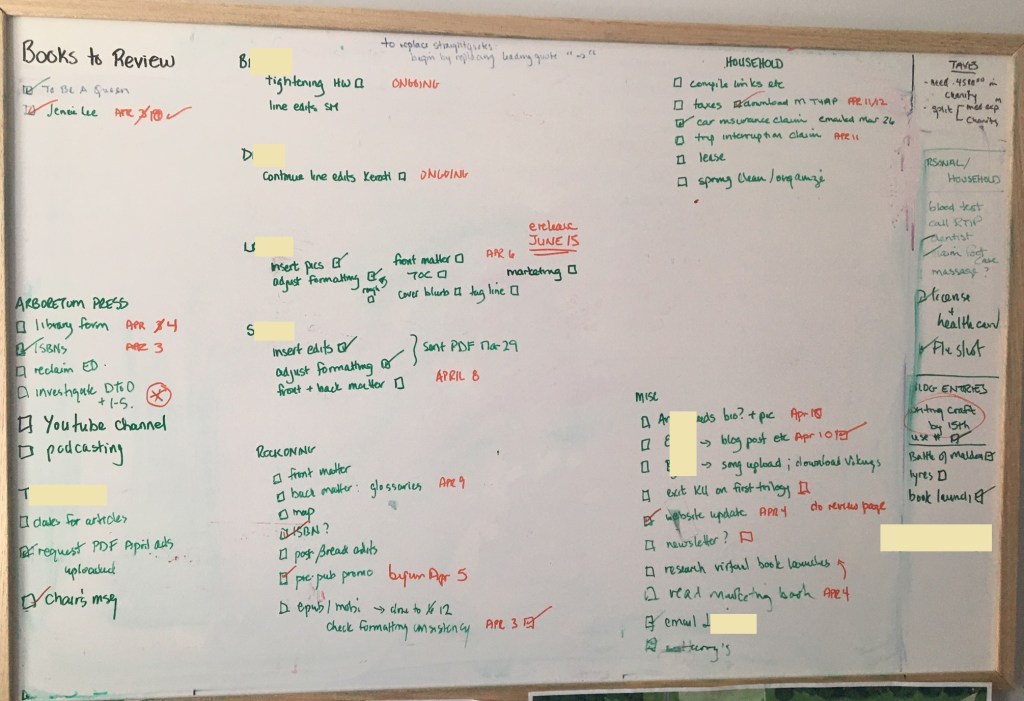 Books to Review
To Be A Queen
Jenni Lee APR
to replace straight quotes
begin by replacing leading quote
B
tightening HW ONGOING
line edits SM
D
continue line edits ONGOING
L
insert pics
adjust formatting
front matter APR 6
TOC
cover blurb tag line
marketing
erelease
JUNE 15
S
insert edits
adjust formatting
sent PDF Mar 29
front + back matter APRIL 8
HOUSEHOLD
compile links etc
taxes download APR 11/12
car insurance claim emailed Mar 26
trip interruption claim APR 11
lease
spring clean / organize
TAXES
- need
charity
- split med exp
charity
RSONAL/
HOUSEHOLD
blood test
call
dentist
massage ?
license
+
health card
Flu shot
BLOG ENTRIES
writing craft
by 15th
use #
Battle of Maldon
tyres
book launch
ARBORETUM PRESS
library form APR 4
ISBNs APR 3
reclaim ED
investigate DtoD
+ I-S.
Youtube channel
podcasting
T
dates for articles
request PDF April ads
uploaded
chair's msg
RECKONING
front matter
back matter: glossaries APR 9
map
ISBN ?
post βread edits
pre-pub promo begun Apr 5
epub / mobi → done to 12
check formatting consistency APR 3
MISC
bio? + pic Apr 18
→ blog post etc Apr 10
→ song upload ; download Vikings
exit KU on first trilogy
website update APR 4 do review page
newsletter ?
research virtual book launches
read marketing book APR 4
email